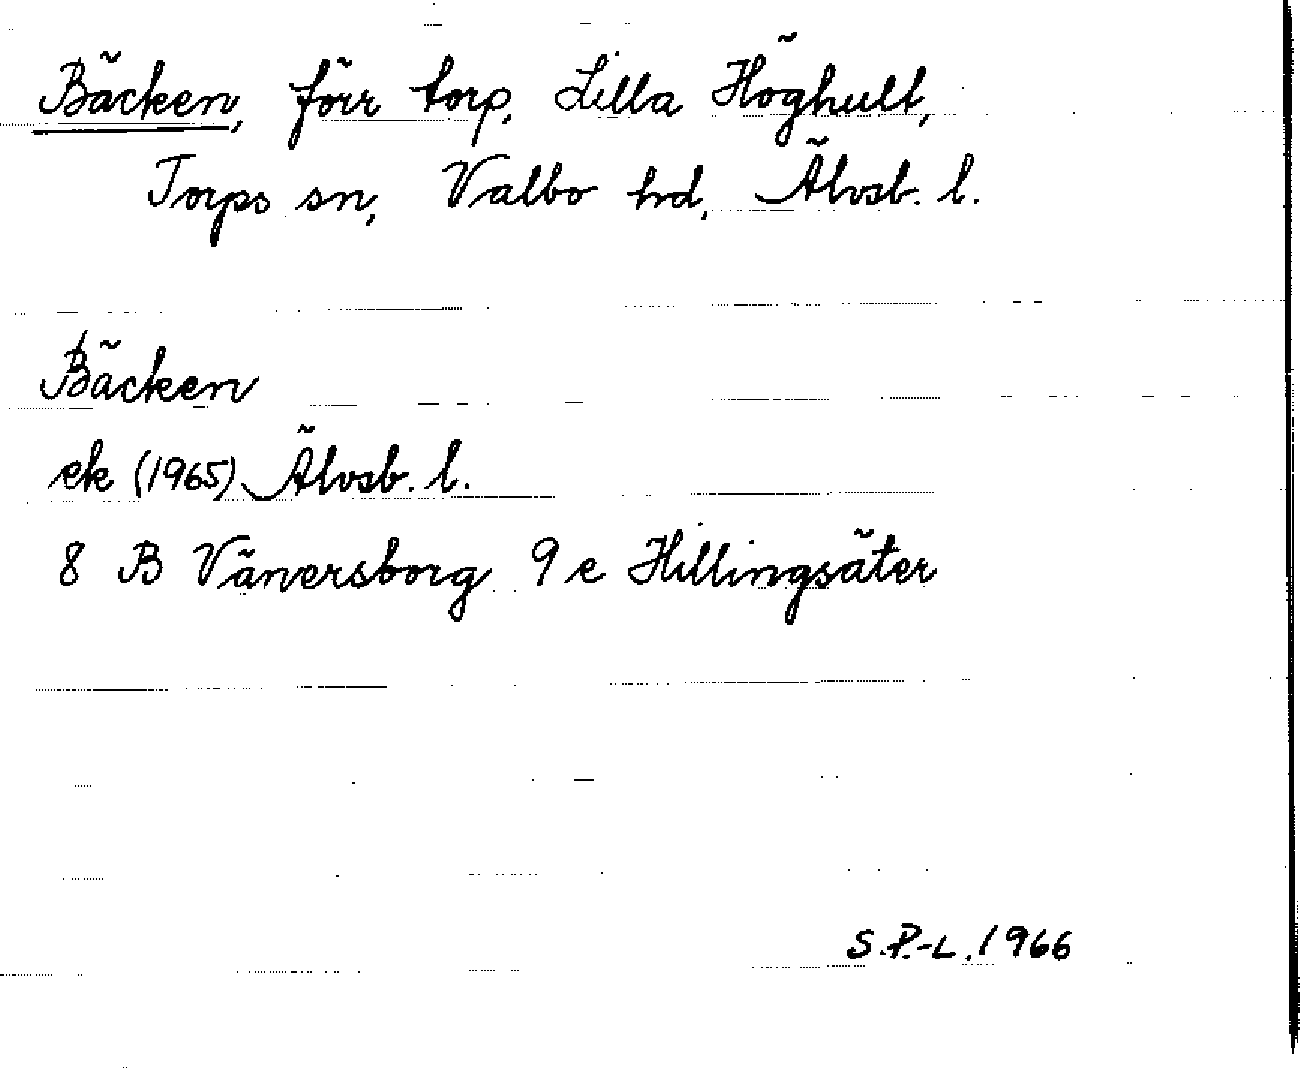 Bäcken, förr torp, Lilla Höghult,
Torps sn, Valbo hd, Älvsb. l.
Bäcken
ek (1965) Älvsb. l.
8 B Vänersborg 9 e Hillingsäter
S.P.-L. 1966